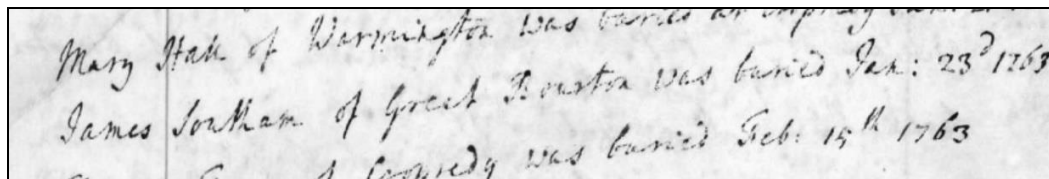 Mary Hall of Warmington was buried at Cropredy
James Southam of Great Bourton was buried Jan: 23d 1763
of Cropredy was buried Feb: 15th 1763